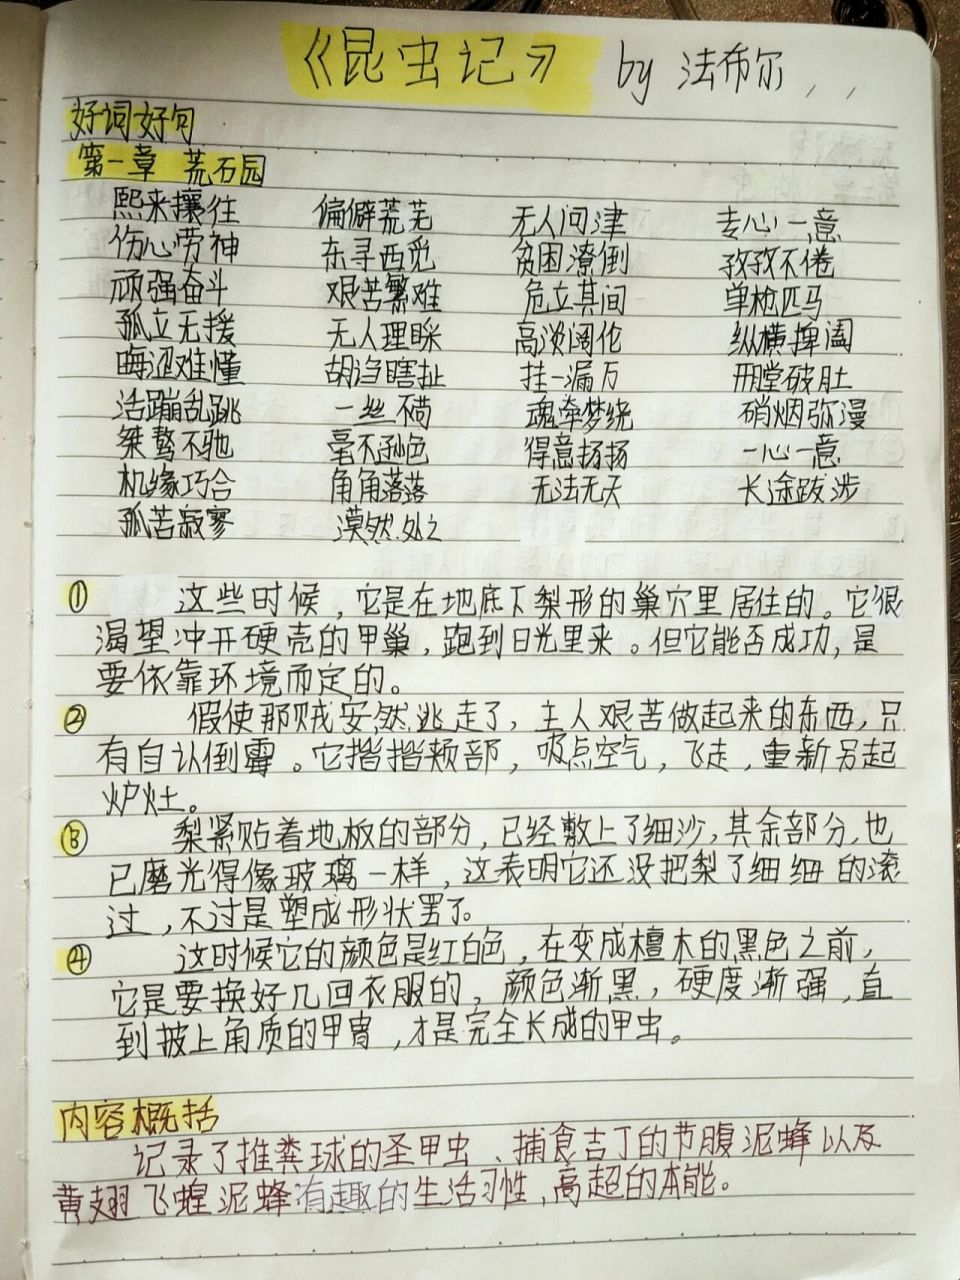 《昆虫记》 by 法布尔
好词好句
第一章 荒石园
熙来攘往 偏僻荒芜 无人问津 专心一意
伤心劳神 东寻西觅 贫困潦倒 孜孜不倦
顽强奋斗 艰苦繁难 危立其间 单枪匹马
孤立无援 无人理睬 高淡阔伦 纵横捭阖
晦涩难懂 胡诌瞎扯 挂一漏万 开膛破肚
活蹦乱跳 一丝不苟 魂牵梦绕 硝烟弥漫
桀骜不驰 毫不逊色 得意扬扬 一心一意
机缘巧合 角角落落 无法无天 长途跋涉
孤苦寂寥 漠然处之
① 这些时候，它是在地底下梨形的巢穴里居住的。它很
渴望冲开硬壳的甲巢，跑到日光里来。但它能否成功，是
要依靠环境而定的。
② 假使那贼安然逃走了，主人艰苦做起来的东西，只
有自认倒霉。它揩揩颊部，吸点空气，飞走，重新另起
炉灶。
③ 梨紧贴着地板的部分，已经敷上了细沙，其余部分，也
已磨光得像玻璃一样，这表明它还没把梨了细细的滚
过，不过是塑成形状罢了。
④ 这时候它的颜色是红白色，在变成檀木的黑色之前，
它是要换好几回衣服的，颜色渐黑，硬度渐强，直
到披上角质的甲胄，才是完全长成的甲虫。
内容概括
记录了推粪球的圣甲虫、捕食吉丁的节腹泥蜂以及
黄翅飞蝗泥蜂有趣的生活习性，高超的本能。